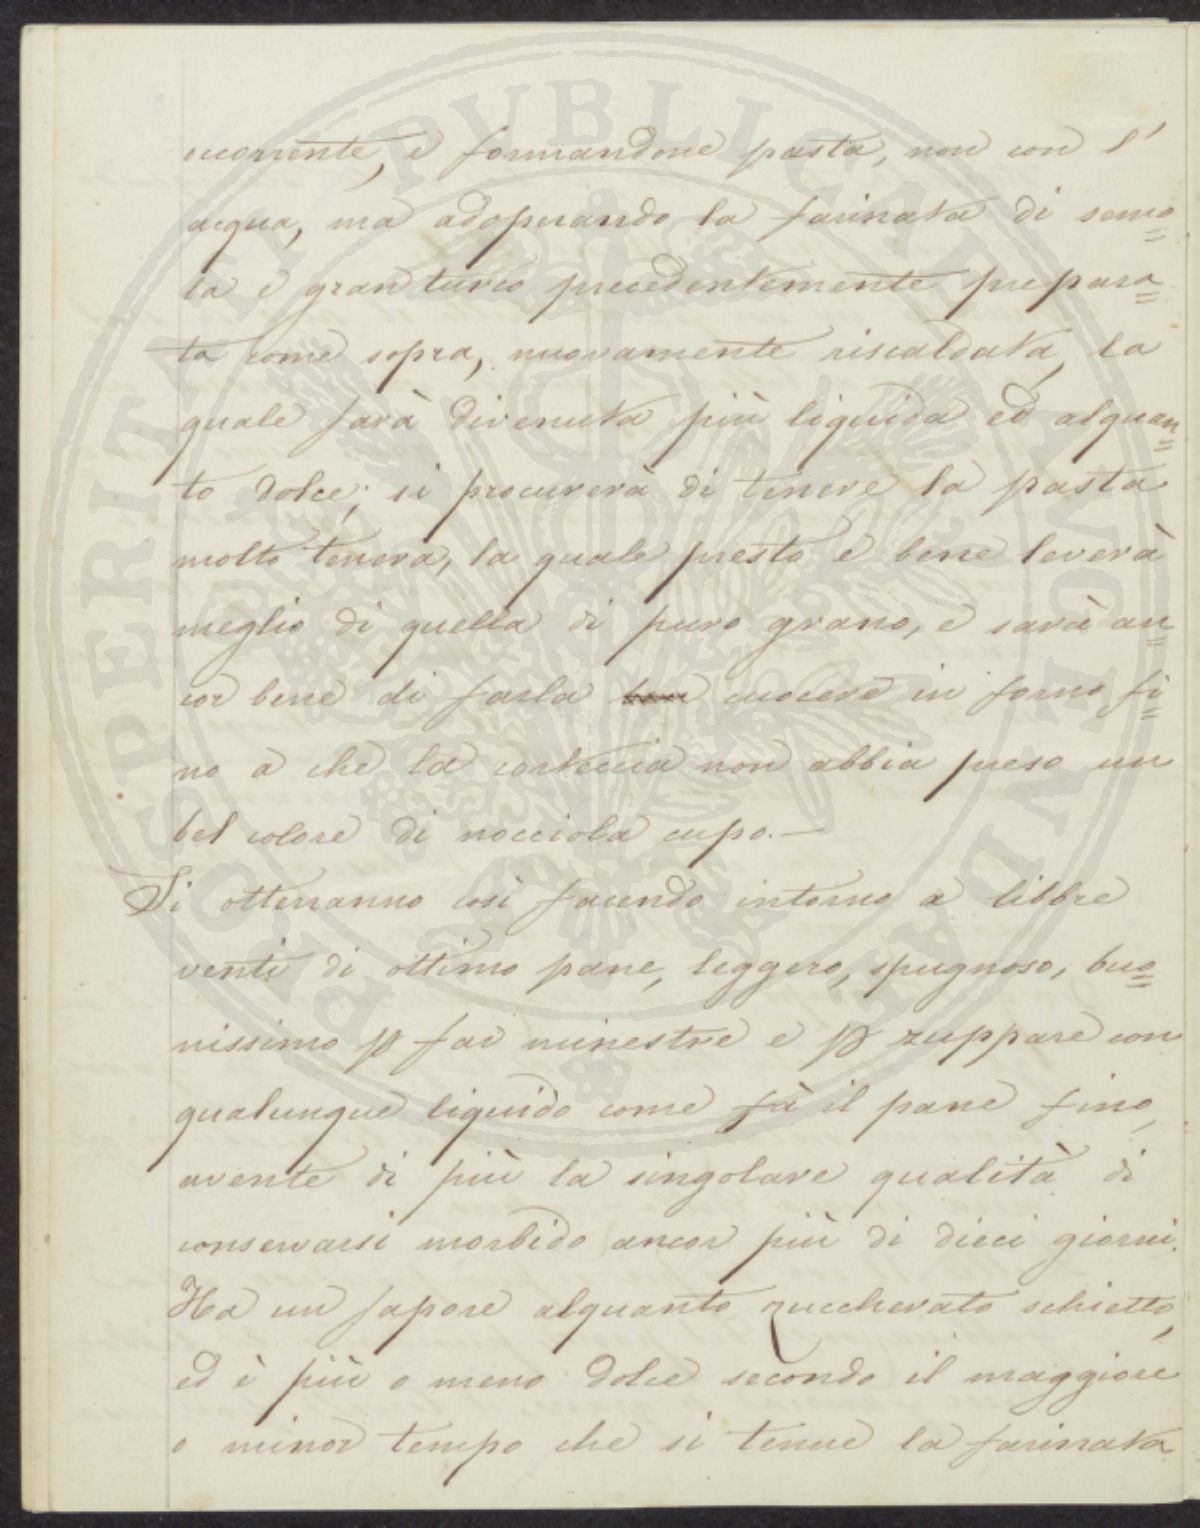 occorrente, e formandone pasta, non con l'
acqua, ma adoperando la farinata di semo=
la e gran turco precedentemente prepara=
ta come sopra, nuovamente riscaldata, la
quale sarà divenuta più liquida ed alquan=
to dolce; si procurerà di tenere la pasta
molto tenera, la quale presto e bene leverà
meglio di quella di puro grano, e sarà an=
cor bene di farla cuocere in forno fi=
no a che la corteccia non abbia preso un
bel colore di nocciola cupo.—
Si otterranno così facendo intorno a libbre
venti di ottimo pane, leggero, spugnoso, buo=
nissimo p far minestre e p zuppare con
qualunque liquido come fà il pane fino,
avente di più la singolare qualità di
conservarsi morbido ancor più di dieci giorni.
Ha un sapore alquanto zuccherato schietto,
ed è più o meno dolce secondo il maggiore
o minor tempo che si tenne la farinata
PROSPERITATI PVBLICAE AVGENDAE